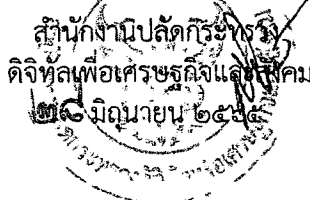 สำนักงานปลัดกระทรวง
ดิจิทัลเพื่อเศรษฐกิจและสังคม
๒๘ มิถุนายน ๒๕๖๕